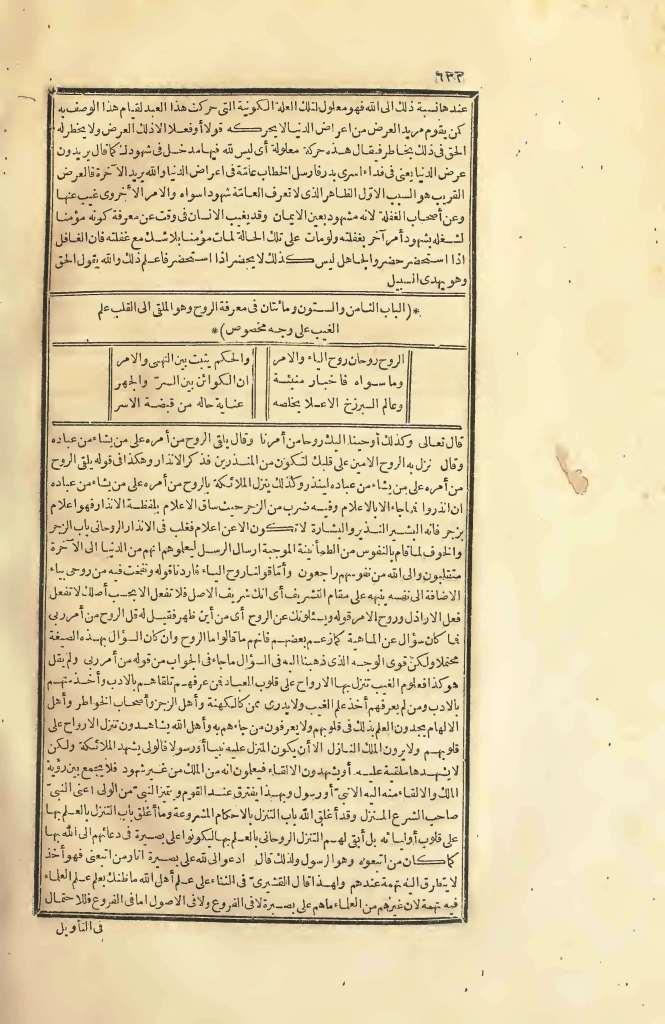 ٦٣٢
عند هانسبة ذلك الى الله فهو معلول لتلك العلة الكونية التى حركت هذا العبد لقيام هذا الوصف به
كمن يقوم مريد العرض من اعراض الدنيا لا يحركه قولا أو فعلا الا ذلك العرض ولا يخطر له
الحق فى ذلك بخاطر فيقال هذه حركة معلولة أى ليس لله فيها مدخل فى شهودك كما قال تريدون
عرض الدنيا يعنى فى فداء اسرى بدر فأرسل الخطاب عامّة فى اعراض الدنيا والله يريد الآخرة فالعرض
القريب هو السبب الاوّل الظاهر الذى لا تعرف العامّة شهودا سواه والامر الأخروى غيب عنها
وعن أصحاب الغفلة لانه مشهود بعين الايمان وقد يغيب الانسان فى وقت عن معرفة كونه مؤمنا
لشغله بشهود أمر آخر بغفلته ولو مات على تلك الحالة لمات مؤمنا بلا شك مع غفلته فان الغافل
اذا استحضر حضر والجاهل ليس كذلك لا يحضر اذا استحضر فاعلم ذلك والله يقول الحق
وهو يهدى السبيل
*(الباب الثامن والستون ومائتان فى معرفة الروح وهو الملقى الى القلب علم
الغيب على وجه مخصوص)*
الروح روحان روح الياء والامر والحكم يثبت بين النهى والامر
وما سواه فاخبار منبئة ان الكوائن بين السرّ والجهر
وعالم البرزخ الاعلا يخلصه عناية حاله من قبضة الاسر
قال تعالى وكذلك أوحينا اليك روحا من أمرنا وقال يلقى الروح من أمره على من يشاء من عباده
وقال نزل به الروح الامين على قلبك لتكون من المنذرين فذكر الانذار وهكذا فى قوله يلقى الروح
من أمره على من يشاء من عباده لينذر وكذلك ينزل الملائكة بالروح من أمره على من يشاء من عباده
ان انذروا فما جاء الا بالاعلام وفيه ضرب من الزجر حيث ساق الاعلام بلفظة الانذار فهو اعلام
بزجر فانه البشير النذير والبشارة لا تكون الا عن اعلام فغلب فى الانذار الروحانى باب الزجر
والخوف لما قام بالنفوس من الطمأنينة الموجبة ارسال الرسل ليعلموهم انهم من الدنيا الى الآخرة
منقلبون والى الله من نفوسهم راجعون وأمّا قولنا روح الياء فأردنا قوله ونفخت فيه من روحى بياء
الاضافة الى نفسه ينبهه على مقام التشريف أى انك شريف الاصل فلا تفعل الا بحسب أصلك لا تفعل
فعل الاراذل وروح الامر قوله ويسئلونك عن الروح أى من أين ظهر فقيل له قل الروح من أمر ربى
فما كان سؤال عن الماهية كما زعم بعضهم فانهم ما قالوا ما الروح وان كان السؤال بهذه الصيغة
محتملا ولكن قوى الوجه الذى ذهبنا اليه فى السؤال ما جاء فى الجواب من قوله من أمر ربى ولم يقل
هو كذا فعلوم الغيب تنزل بها الارواح على قلوب العباد فمن عرفهم تلقاهم بالادب وأخذ منهم
بالادب ومن لم يعرفهم أخذ علم الغيب ولا يدرى ممن كالكهنة وأهل الزجر وأصحاب الخواطر وأهل
الالهام يجدون العلم بذلك فى قلوبهم ولا يعرفون من جاءهم به وأهل الله يشاهدون تنزل الارواح على
قلوبهم ولا يرون الملك النازل الا أن يكون المنزل عليه نبيا أو رسولا فالولى يشهد الملائكة ولكن
لا يشهدها ملقية عليه أو يشهدون الالقاء فيعلمون انه من الملك من غير شهود فلا يجمع بين رؤية
الملك والالقاء منه اليه الا نبىّ أو رسول وبهذا يفترق عند القوم ويتميز النبىّ من الولى أعنى النبىّ
صاحب الشرع المنزل وقد أغلق الله باب التنزل بالاحكام المشروعة وما أغلق باب التنزل بالعلم بها
على قلوب أوليائه بل أبقى لهم التنزل الروحانى بالعلم بها ليكونوا على بصيرة فى دعائهم الى الله بها
كما كان من اتبعوه وهو الرسول ولذلك قال ادعو الى الله على بصيرة أنا ومن اتبعنى فهو أخذ
لا يتطرق اليه تهمة عندهم ولهذا قال القشيرىّ فى الثناء على علم أهل الله ما ظنك بعلم علم العلماء
فيه تهمة لان غيرهم من العلماء ماهم على بصيرة لا فى الفروع ولا فى الاصول اما فى الفروع فللاحتمال
فى التأويل